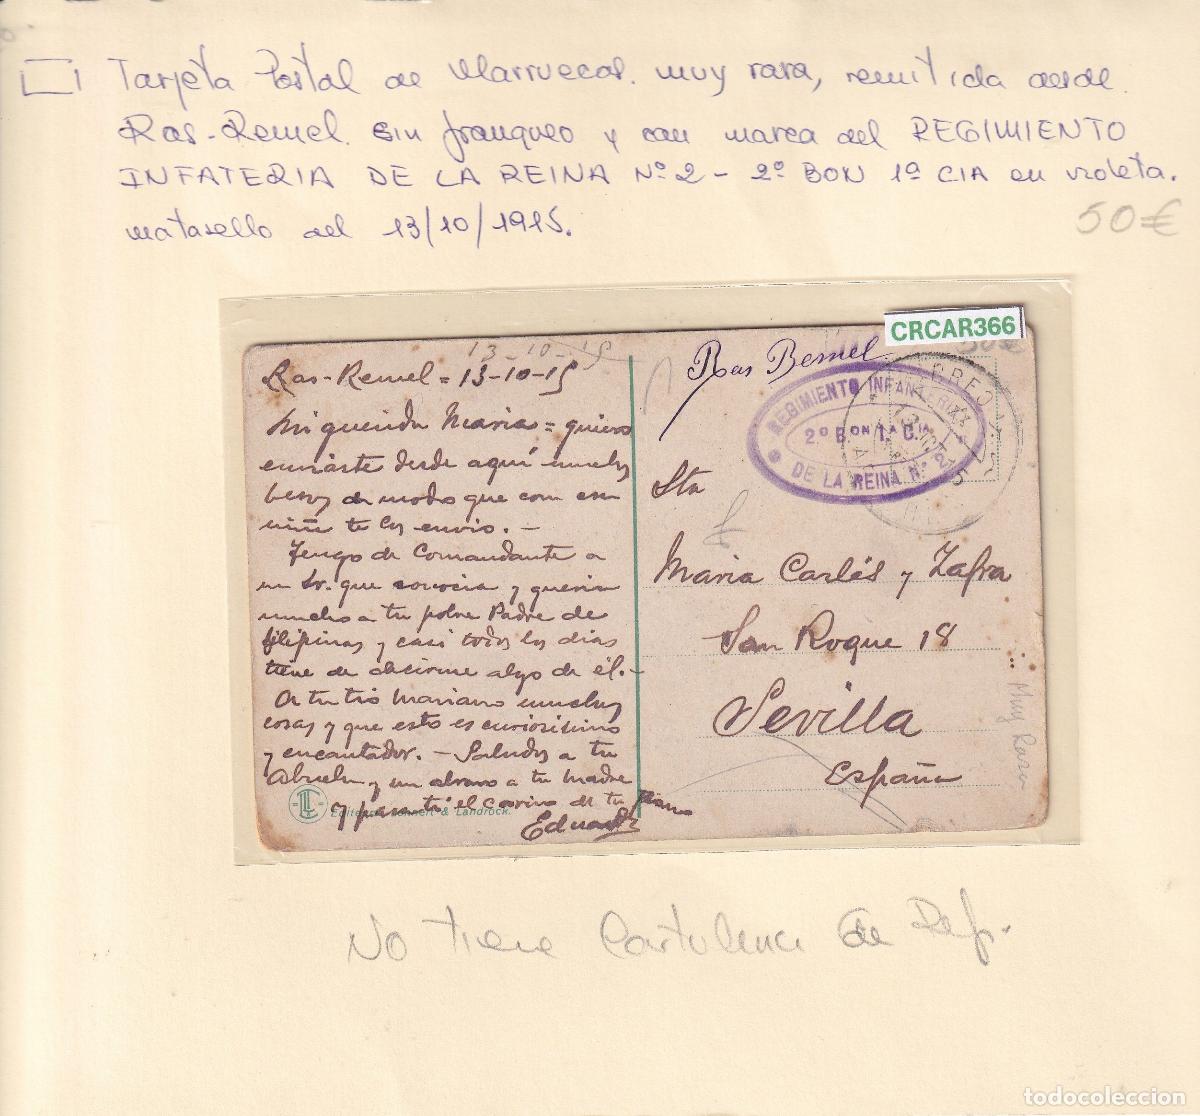 Tarjeta Postal de Marruecos. muy rara, remitida desde.
Ras-Remel. sin franqueo y con marca del REGIMIENTO
INFATERIA DE LA REINA Nº 2 - 2º BON 1ª CIA en violeta.
matasello del 13/10/1915.
50€
CRCAR366
13-10-15
Ras-Remel = 13-10-15
Mi querida Maria = quiero
enviarte desde aquí muchos
besos de modo que con ese
te los envio. -
Tengo de Comandante a
un Sr. que conocia y queria
mucho a tu pobre Padre de
filipinas y casi todos los dias
tiene de decirme algo de él. -
A tu tio Mariano muchas
cosas y que esto es curiosísimo
y encantador. - Saludos a tu
Abuela y un abrazo a tu Madre
y para ti el cariño de tu
Eduardo
Lehnert & Landrock.
Ras Bemel
REGIMIENTO INFANTERIA
2º BON 1ª CIA
DE LA REINA Nº 2
CORREO
Sta
Maria Carlés y Zafra
San Roque 18
Sevilla
España
Muy Rara
No tiene Cartulina de Ref.
todocoleccion